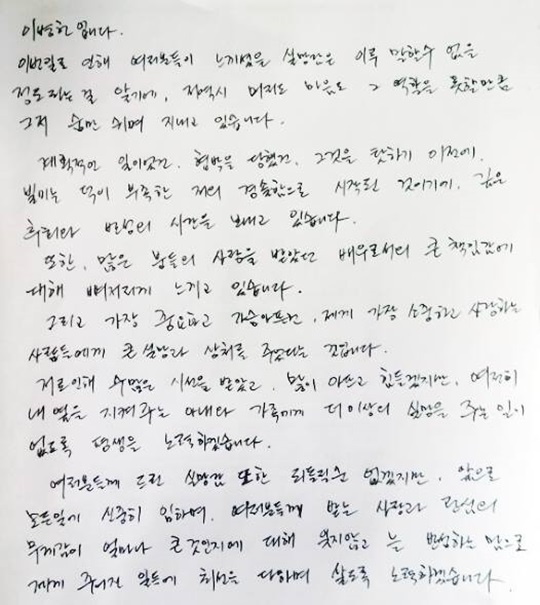 이병헌입니다.
이번일로 인해 여러분들이 느끼셨을 실망감은 이루 말할수 없을
정도라는걸 알기에, 저역시 머리도 마음도 그 역할을 못할만큼
그저 숨만 쉬며 지내고 있습니다.
계획적인 일이었건, 협박을 당했건, 그것을 탓하기 이전에,
빌미는 덕이 부족한 저의 경솔함으로 시작된 것이기에. 깊은
후회와 반성의 시간을 보내고 있습니다.
또한, 많은 분들의 사랑을 받았던 배우로서의 큰 책임감에
대해 뼈저리게 느끼고 있습니다.
그리고 가장 중요하고 가슴아프건, 제게 가장 소중하고 사랑하는
사람들에게 큰 실망과 상처를 주었다는 것입니다.
저로인해 수많은 시선을 받았고, 많이 아프고 힘들겠지만, 여전히
내 옆을 지켜주는 아내와 가족에게 더이상의 실망을 주는 일이
없도록 평생을 노력하겠습니다.
여러분들께 드린 실망감 또한 되돌릴순 없겠지만, 앞으로
모든일에 신중히 임하며, 여러분들께 받는 사랑과 관심의
무게감이 얼마나 큰것인지에 대해 잊지않고 늘 반성하는 맘으로
제게 주어진 일들에 최선을 다하며 살도록 노력하겠습니다.